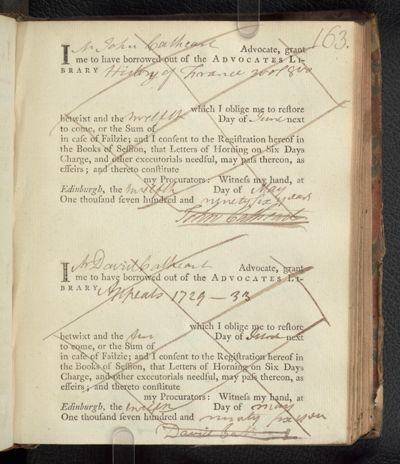 163.
I Mr John Cathcart Advocate, grant
me to have borrowed out of the ADVOCATES LI-
BRARY History of France 8vo
which I oblige me to restore
betwixt and the twelfth Day of June next
to come, or the Sum of
in case of Failzie; and I consent to the Registration hereof in
the Books of Session, that Letters of Horning on Six Days
Charge, and other executorials needful, may pass thereon, as
effeirs; and thereto constitute
my Procurators: Witness my hand, at
Edinburgh, the twelfth Day of May
One thousand seven hundred and ninety six years
John Cathcart
I Mr David Cathcart Advocate, grant
me to have borrowed out of the ADVOCATES LI-
BRARY Appeals 1729-33
which I oblige me to restore
betwixt and the Day of June next
to come, or the Sum of
in case of Failzie; and I consent to the Registration hereof in
the Books of Session, that Letters of Horning on Six Days
Charge, and other executorials needful, may pass thereon, as
effeirs; and thereto constitute
my Procurators: Witness my hand, at
Edinburgh, the twelfth Day of May
One thousand seven hundred and ninety six years
David